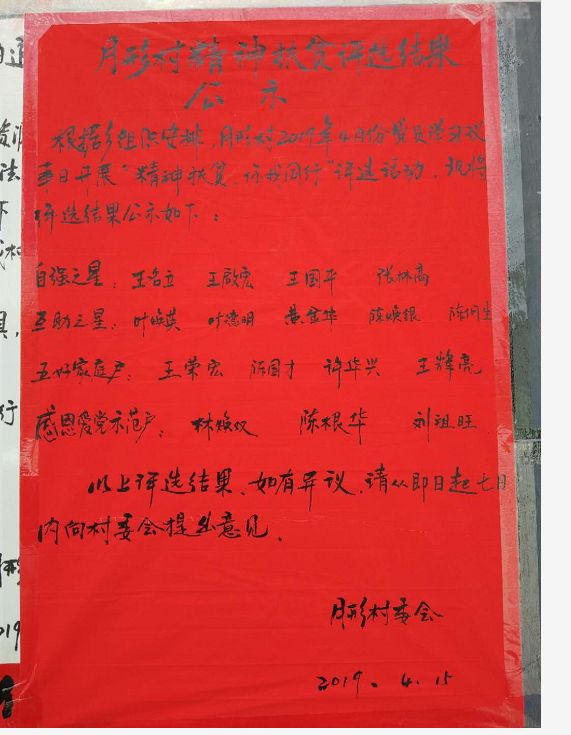 月形村精神扶贫评选结果
公示
根据乡组织安排,月形村2019年4月份党员学习议
事日开展“精神扶贫、你我同行”评选活动,现将
评选结果公示如下:
自强之星:王名立 王啟宏 王国平 张林高
互助之星:叶焕英 叶德明 黄金华 陈焕银
五好家庭户:王荣宏 陈国才 许华兴 王辉亮
感恩爱党示范户:林焕仪 陈根华 刘祖旺
以上评选结果,如有异议,请从即日起七日
内向村委会提出意见.
月形村委会
2019.4.15